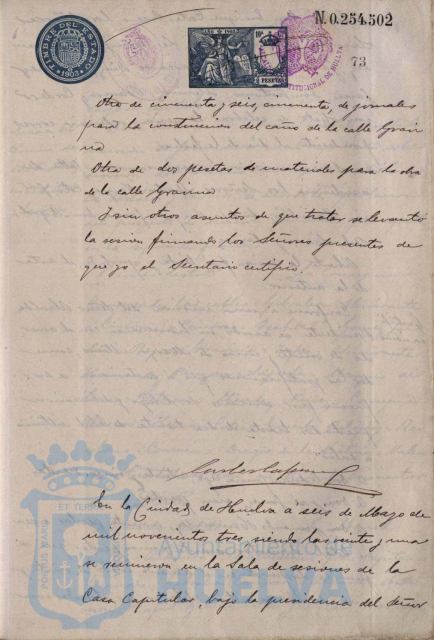 TIMBRE DEL ESTADO
1903
AÑO DE 1903
10ª
PESETAS
N. 0.254.502
CONSTITUCIONAL DE HUELVA
73
Otro de cincuenta y seis, cincuenta, de jornales
para la construcción del caño de la calle Gravi
na
Otra de dos pesetas de materiales para la obra
de la calle Gravina
Y sin otros asuntos de que tratar se levantó
la sesión firmando los Señores presentes de
que yo el Secretario certifico.
En la Ciudad de Huelva a seis de Mayo de
mil novecientos tres, siendo las veinte y una
se reunieron en la Sala de sesiones de la
Casa Capitular, bajo la presidencia del Señor
PORTUS MARIS
ET TERRAE
Ayuntamiento de
HUELVA